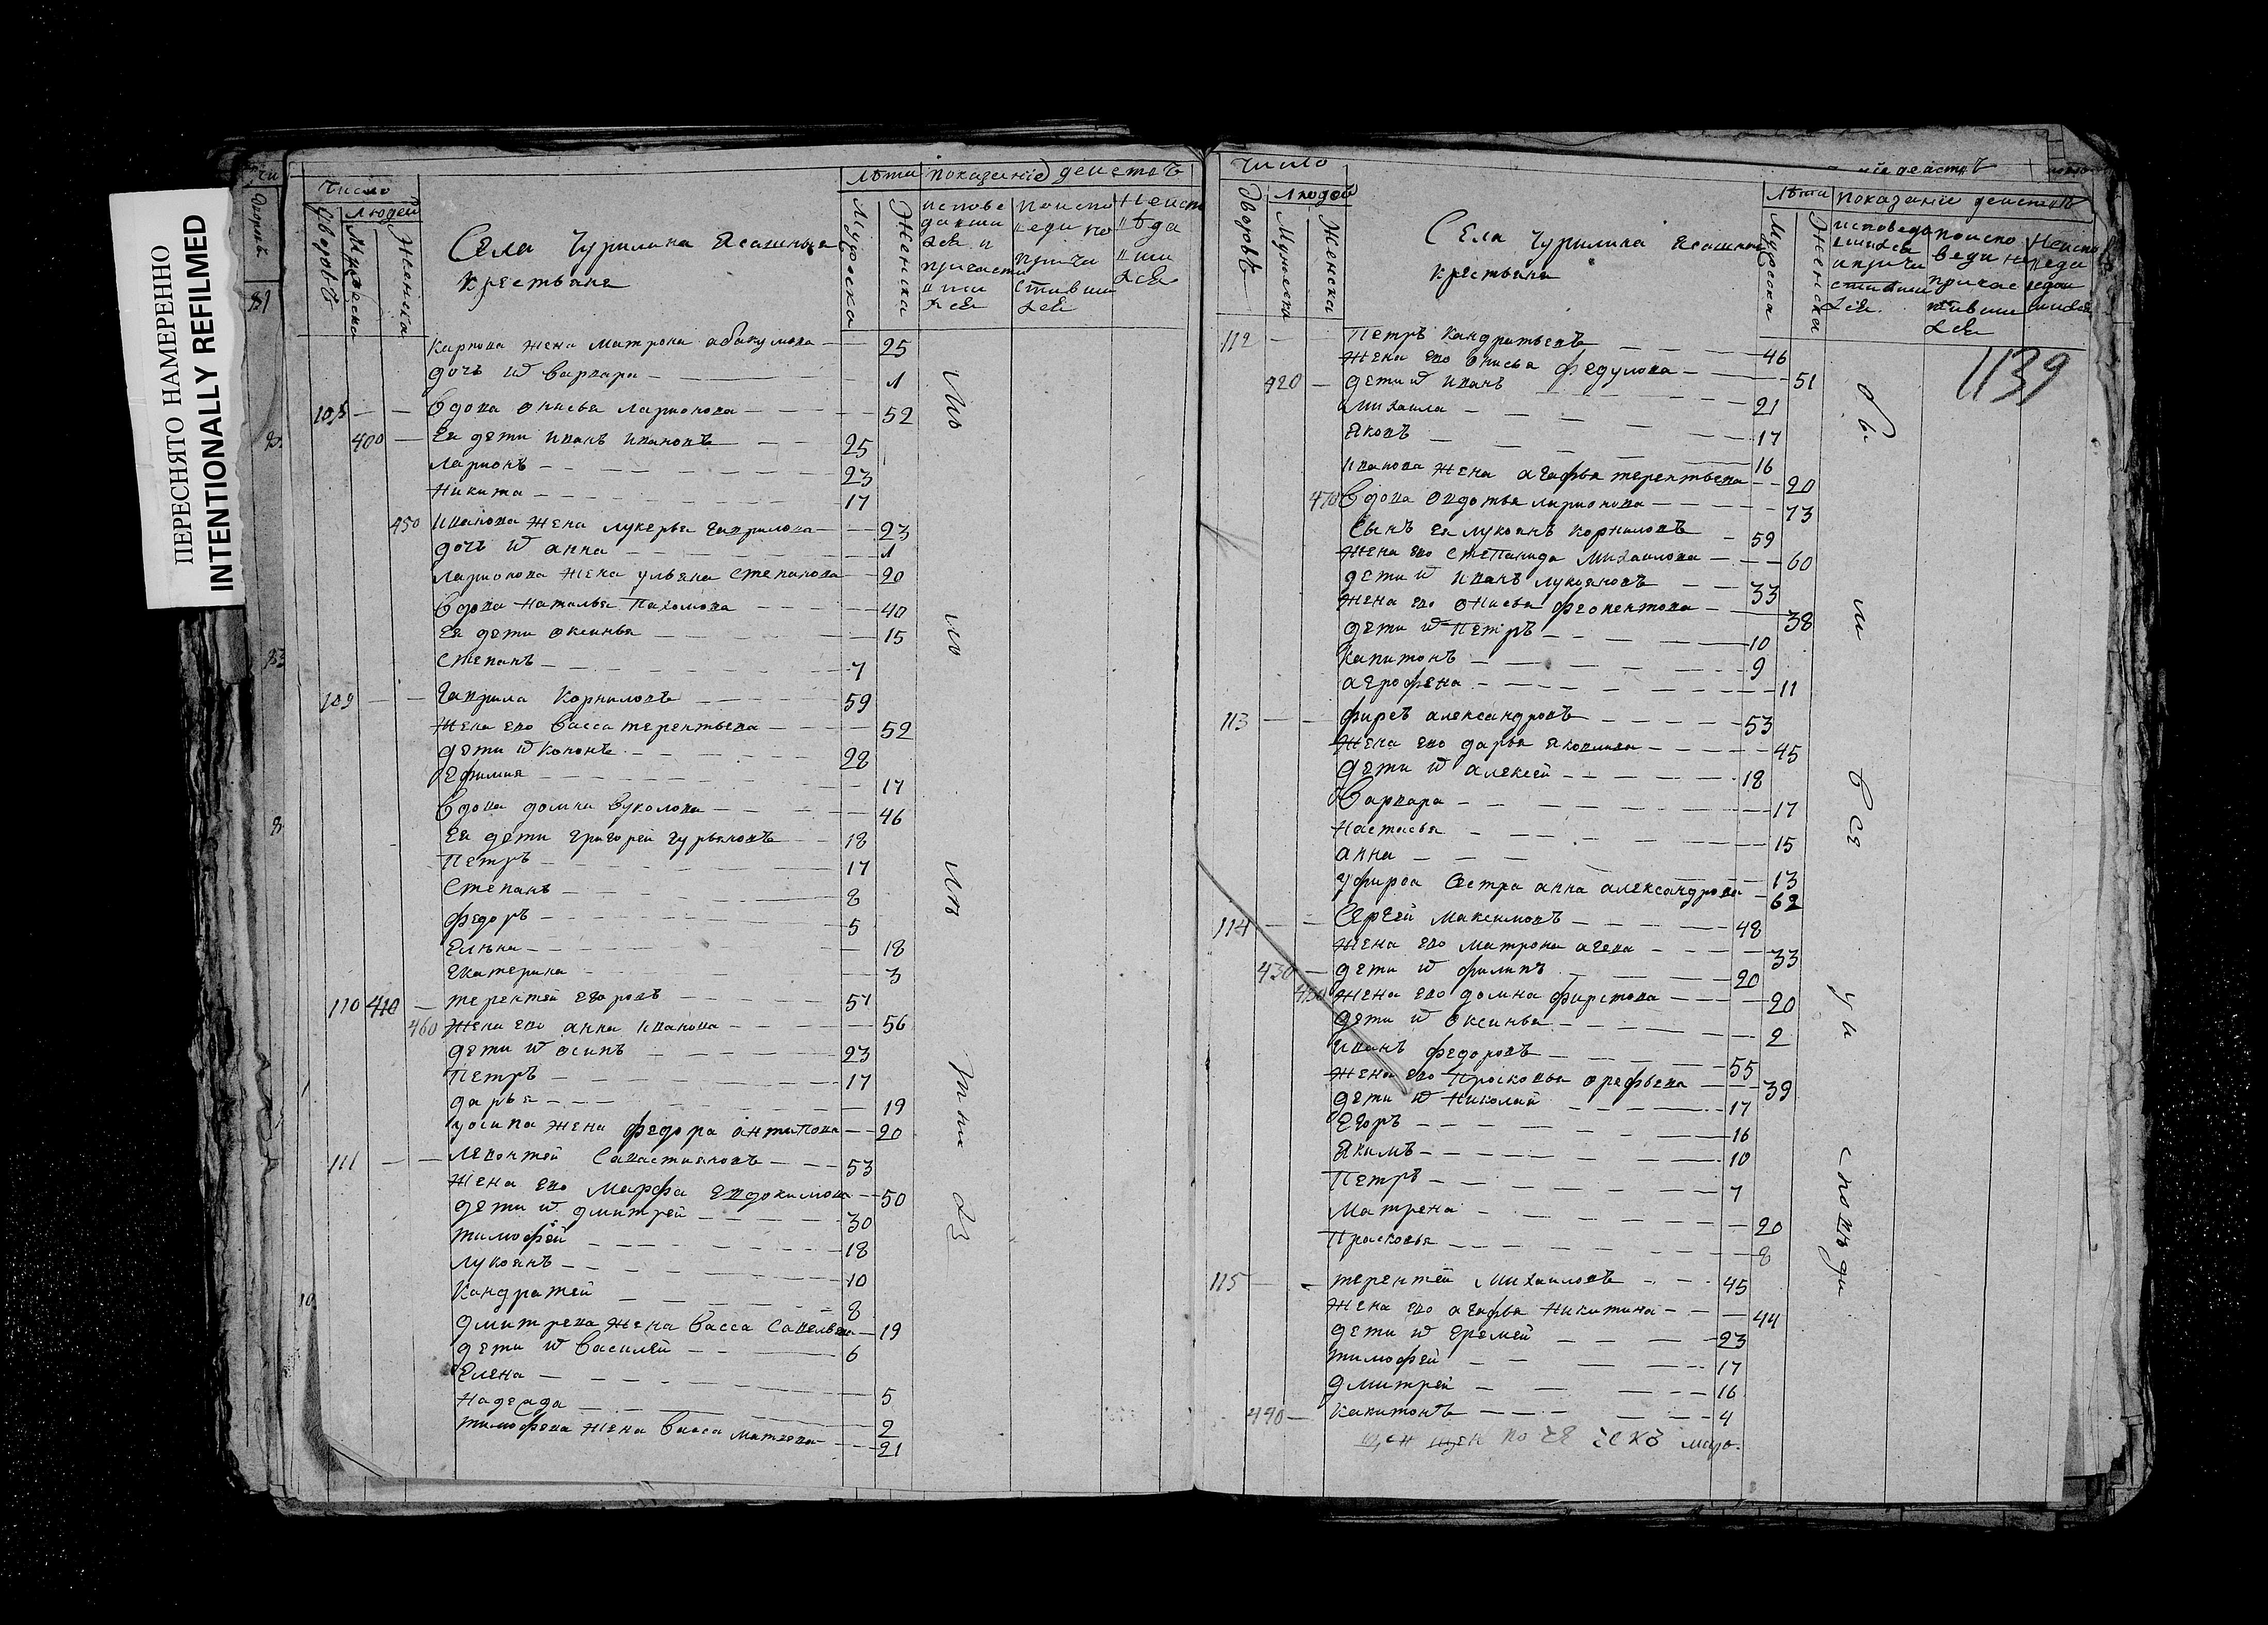 ПЕРЕСНЯТО НАМЕРЕННО
INTENTIONALLY REFILMED
число
людей
дворовъ
мужеска
женска
Села Чурилина ясашныя
крестьяня
лѣта показание действъ
мужеска
женска
исповедавшиися и причастившиися
по исповеди но причастившиися
Карпова жена матрона абакумова 25
дочь ѿ варвара 1
вдова онисья ларионова 52
400 Ея дети иванъ ивановъ 25
ларионъ 23
никита 17
450 иванова жена лукерья гаврилова 23
дочь ѿ анна 1
ларионова жена ульяна степанова 20
вдова наталья пахомова 40
Ея дети оксинья 15
степанъ 7
109 гаврила корниловъ 59
жена ево васса терентьева 52
дети ѿ кононъ 28
Ефимия 17
вдова домна вуколова 46
Ея дети григорей гурьяновъ 18
петръ 17
степанъ 8
федоръ 5
Елѣна 18
Екатерина 3
110 410 терентей Егоровъ 57
460 жена ево анна иванова 56
дети ѿ осипъ 23
петръ 17
дарья 19
уосипа жена федора антипова 20
111 леонтей савастияновъ 53
жена ево марфа Евдокимова 50
дети ѿ дмитрей 30
тимофей 18
лукоянъ 10
кандратей 8
дмитрева жена васса савельева 19
дети ѿ василей 6
Елена 5
надежда 2
тимофева жена васса матвева 21
число
людей
дворовъ
мужеска
женска
Села Чурилина ясашныя
крестьяня
лѣта показание действъ
мужеска
женска
1139
112 петръ кандратьевъ 46
жена ево онисья федулова 51
420 дети ѿ иванъ 21
михаила 17
яковъ 16
иванова жена агафья терентьева 20
470 вдова овдотья ларионова 73
сынъ Ея лукоянъ корниловъ 59
жена ево степанида михаилова 60
дети ѿ иванъ лукояновъ 33
жена ево онисья феопентова 38
дети ѿ петръ 10
капитонъ 9
агрофена 11
113 фирсъ александровъ 53
жена ево дарья яковлева 45
дети ѿ алексей 18
варвара 17
настасья 15
анна 13
уфирса сестра анна александрова 62
114 сергей максимовъ 48
жена ево матрона агева 33
430 дети ѿ филипъ 20
480 жена ево домна фирстова 20
дети ѿ оксинья 2
иванъ федоровъ 55
жена ево просковья орефьева 39
дети ѿ николай 17
Егоръ 16
якимъ 10
петръ 7
матрена 20
прасковья 8
115 терентей михаиловъ 45
жена ево агафья никитина 44
дети ѿ Еремей 23
тимофей 17
дмитрей 16
440 капитонъ 4